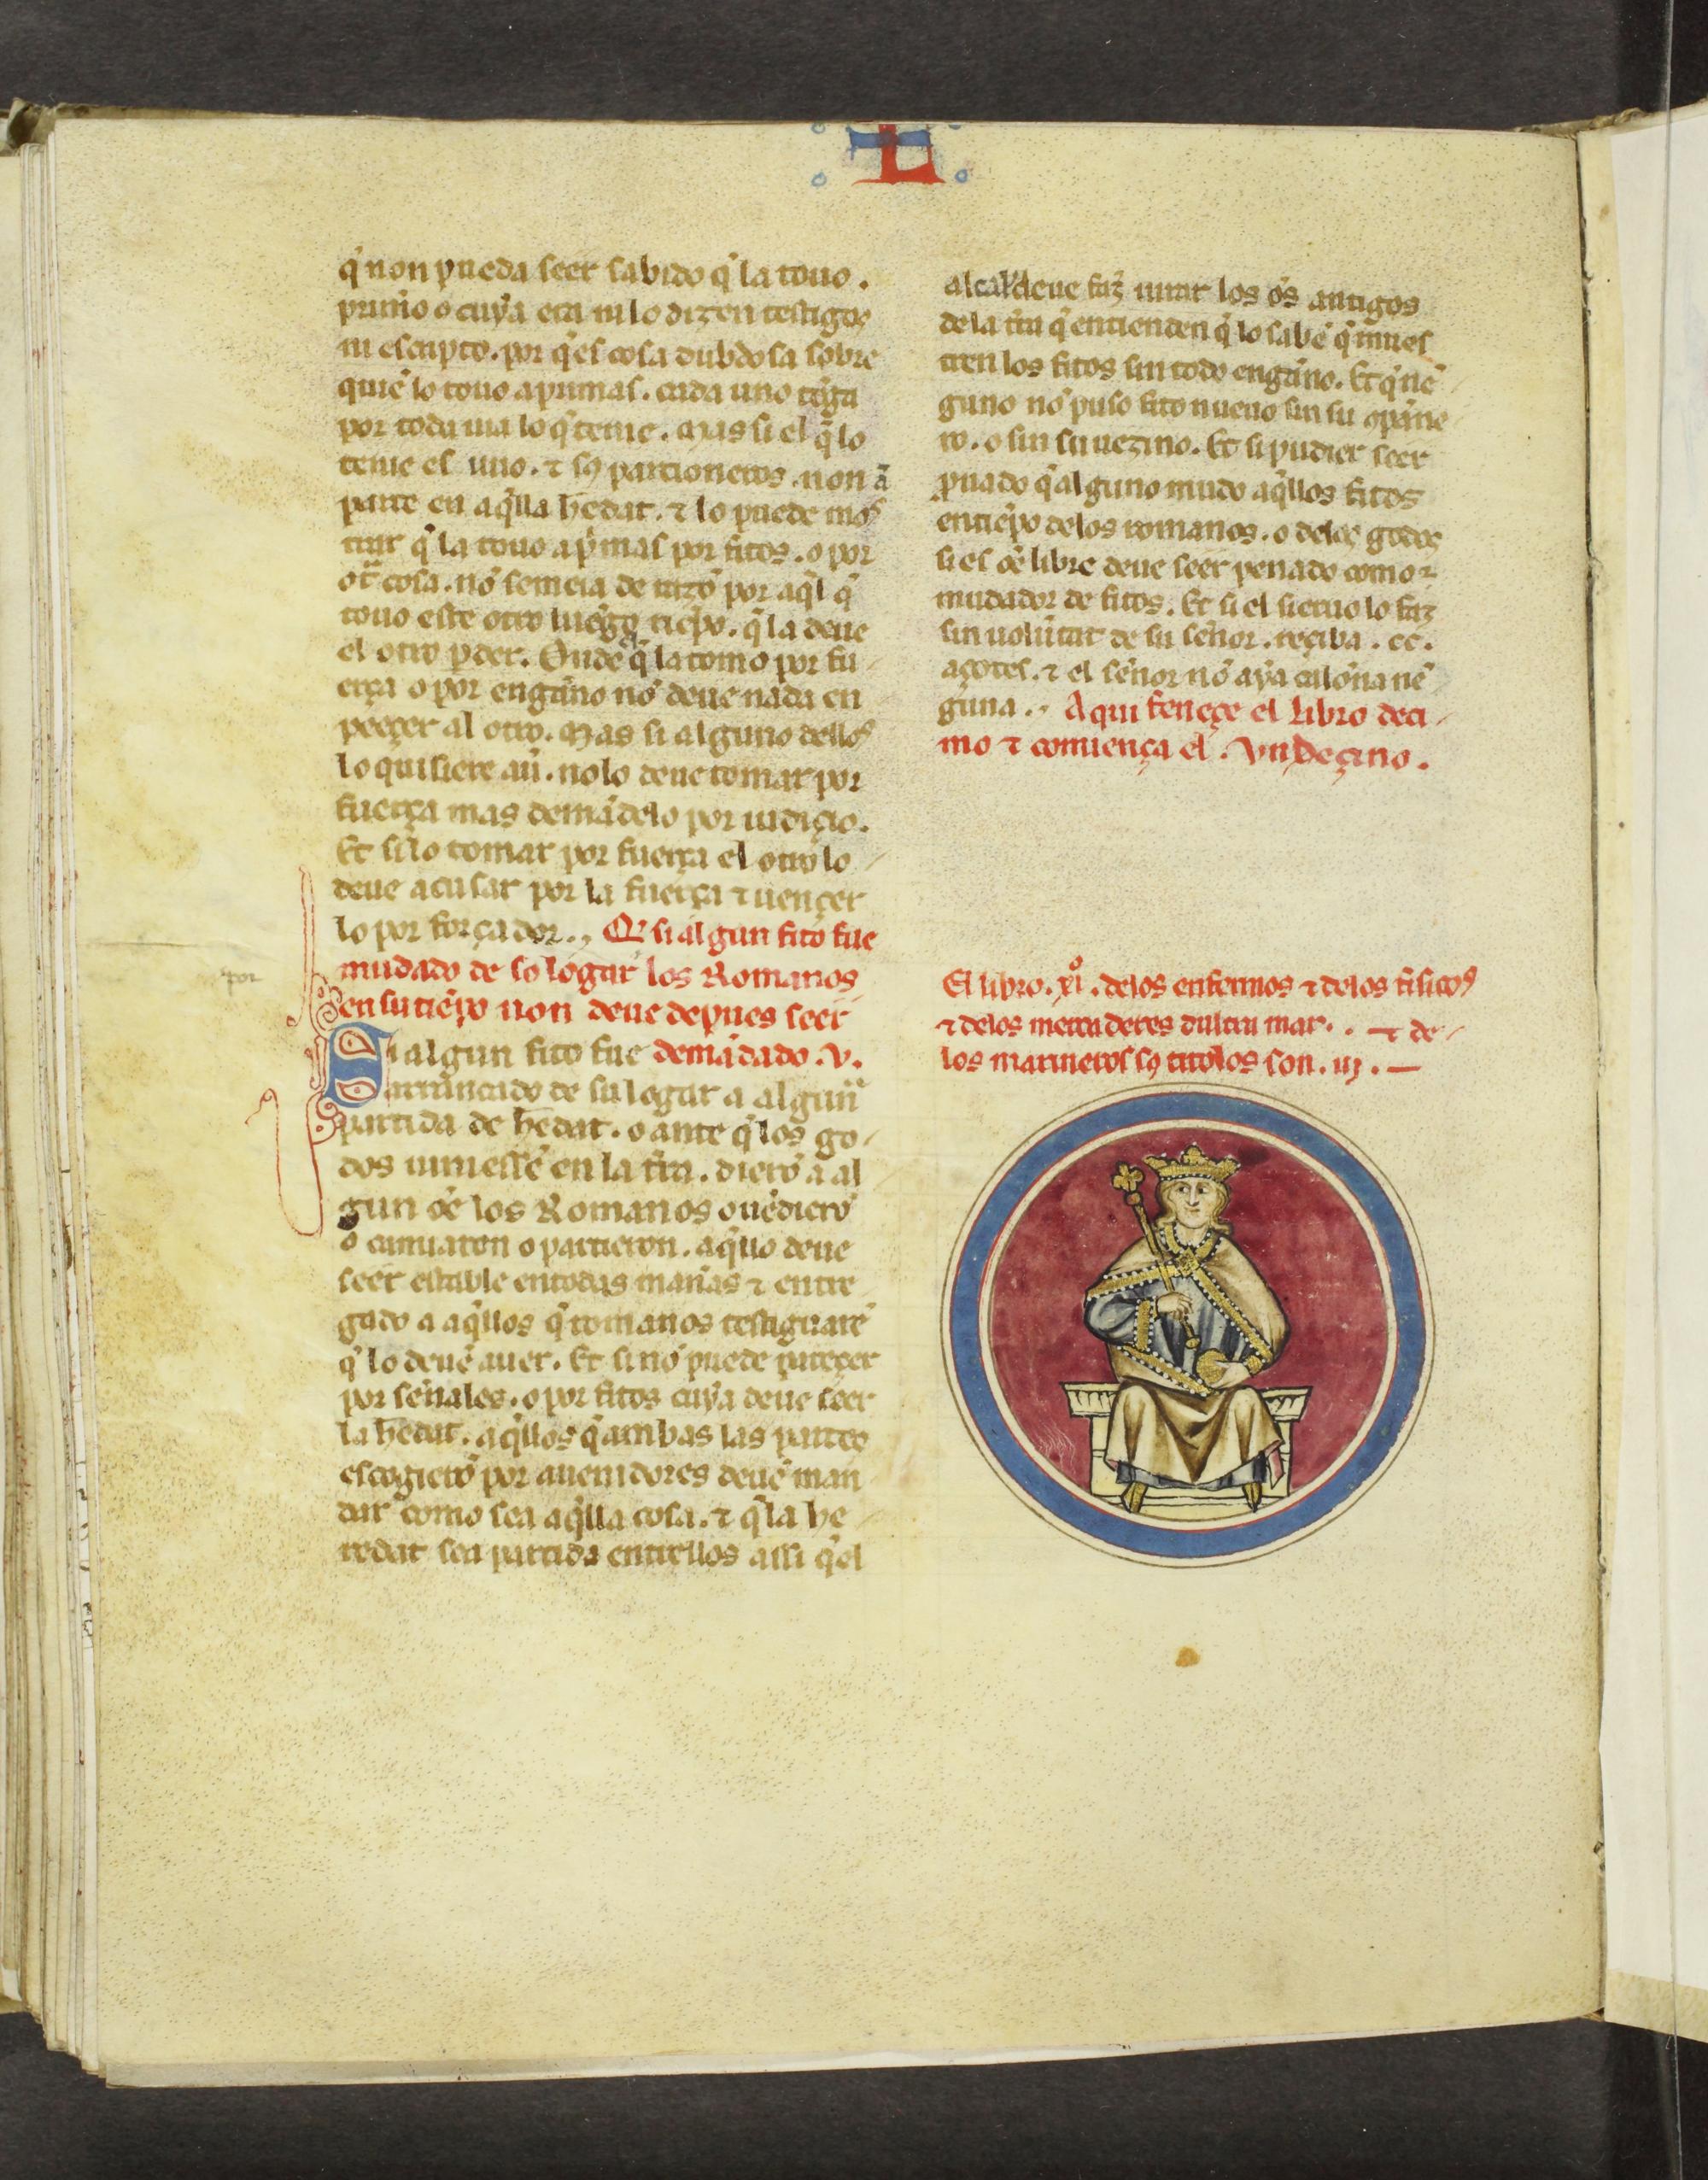 L
q̃ non pueda seer sabido q̃ la touo.
primo o cuya era ni lo dizen testigos
ni escripto. por q̃ es cosa dubdosa sobre
quiẽ lo touo a primas. cada uno tẽga
por toda uia lo q̃ tenie. Mas si el q̃ lo
tenie es uno. ⁊ sꝯ parcioneros. non ã
parte en aq̃lla hedat. ⁊ lo puede mos
trar q̃ la touo a p̃mas por fitos. o por
otͣ cosa. nõ semeia de razõ por aq̃l q̃
touo este otro luẽgo tiẽpo. q̃ la deue
el otro ꝑder. Onde q̃ la tomo por fu
erça o por engãno nõ deue nada en
peeçer al otro. Mas si alguno dellos
lo quisiere aũ. no lo deue tomar por
fuerça mas demãdelo por iudiçio.
Et si lo tomar por fuerça el otro lo
deue acusar por la fuerça ⁊ uençer
lo por forçador. Q̃ si algun fito fue
mudado de so logar los Romanos
por
en su tiẽpo non deue depues seer
Si algun fito fue demãdado. V.
arrancado de su logar a algunͣ
partida de hedat. o ante q̃ los go
dos uiniessẽ en la tr̃ra. dierõ a al
gun oẽ los Romanos o uẽdierõ
o camiaron o partieron. aq̃llo deue
seer estable en todas manas ⁊ entre
gado a aq̃llos q̃ romanos testiguarẽ
q̃ lo deuẽ auer. Et si nõ puede pareçer
por señales. o por fitos cuya deue seer
la hedat. aq̃llos q̃ ambas las partes
escogierõ por auenidores deuẽ man
dar como sea aq̃lla cosa. ⁊ q̃ la he
redat sea partida entrellos assi q̃ el
alcalde deue faz̃ iurar los oẽs antigos
de la tr̃ra q̃ entienden q̃ lo sabẽ q̃ mues
tren los fitos sin todo engãno. Et q̃ nẽ
guno nõ puso fito nueuo sin su ꝯpãne
ro. o sin su uezino. Et si pudier seer
ꝓuado q̃ alguno mudo aq̃llos fitos
en tiẽpo de los romanos. o de los godos
si es oẽ libre deue seer penado como
mudador de fitos. Et si el sieruo lo faz
sin uolũtat de su señor. reçiba. cc.
açotes. ⁊ el señor nõ aya calõna nẽ
guna.. Aqui feneçe el Libro deci
mo ⁊ comiença el. Vndeçino.
El libro. xiº. de los enfermos ⁊ de los fisicos
⁊ de los mercaderes dultra mar. . ⁊ de
los marineros sꝯ titolos son. iij.